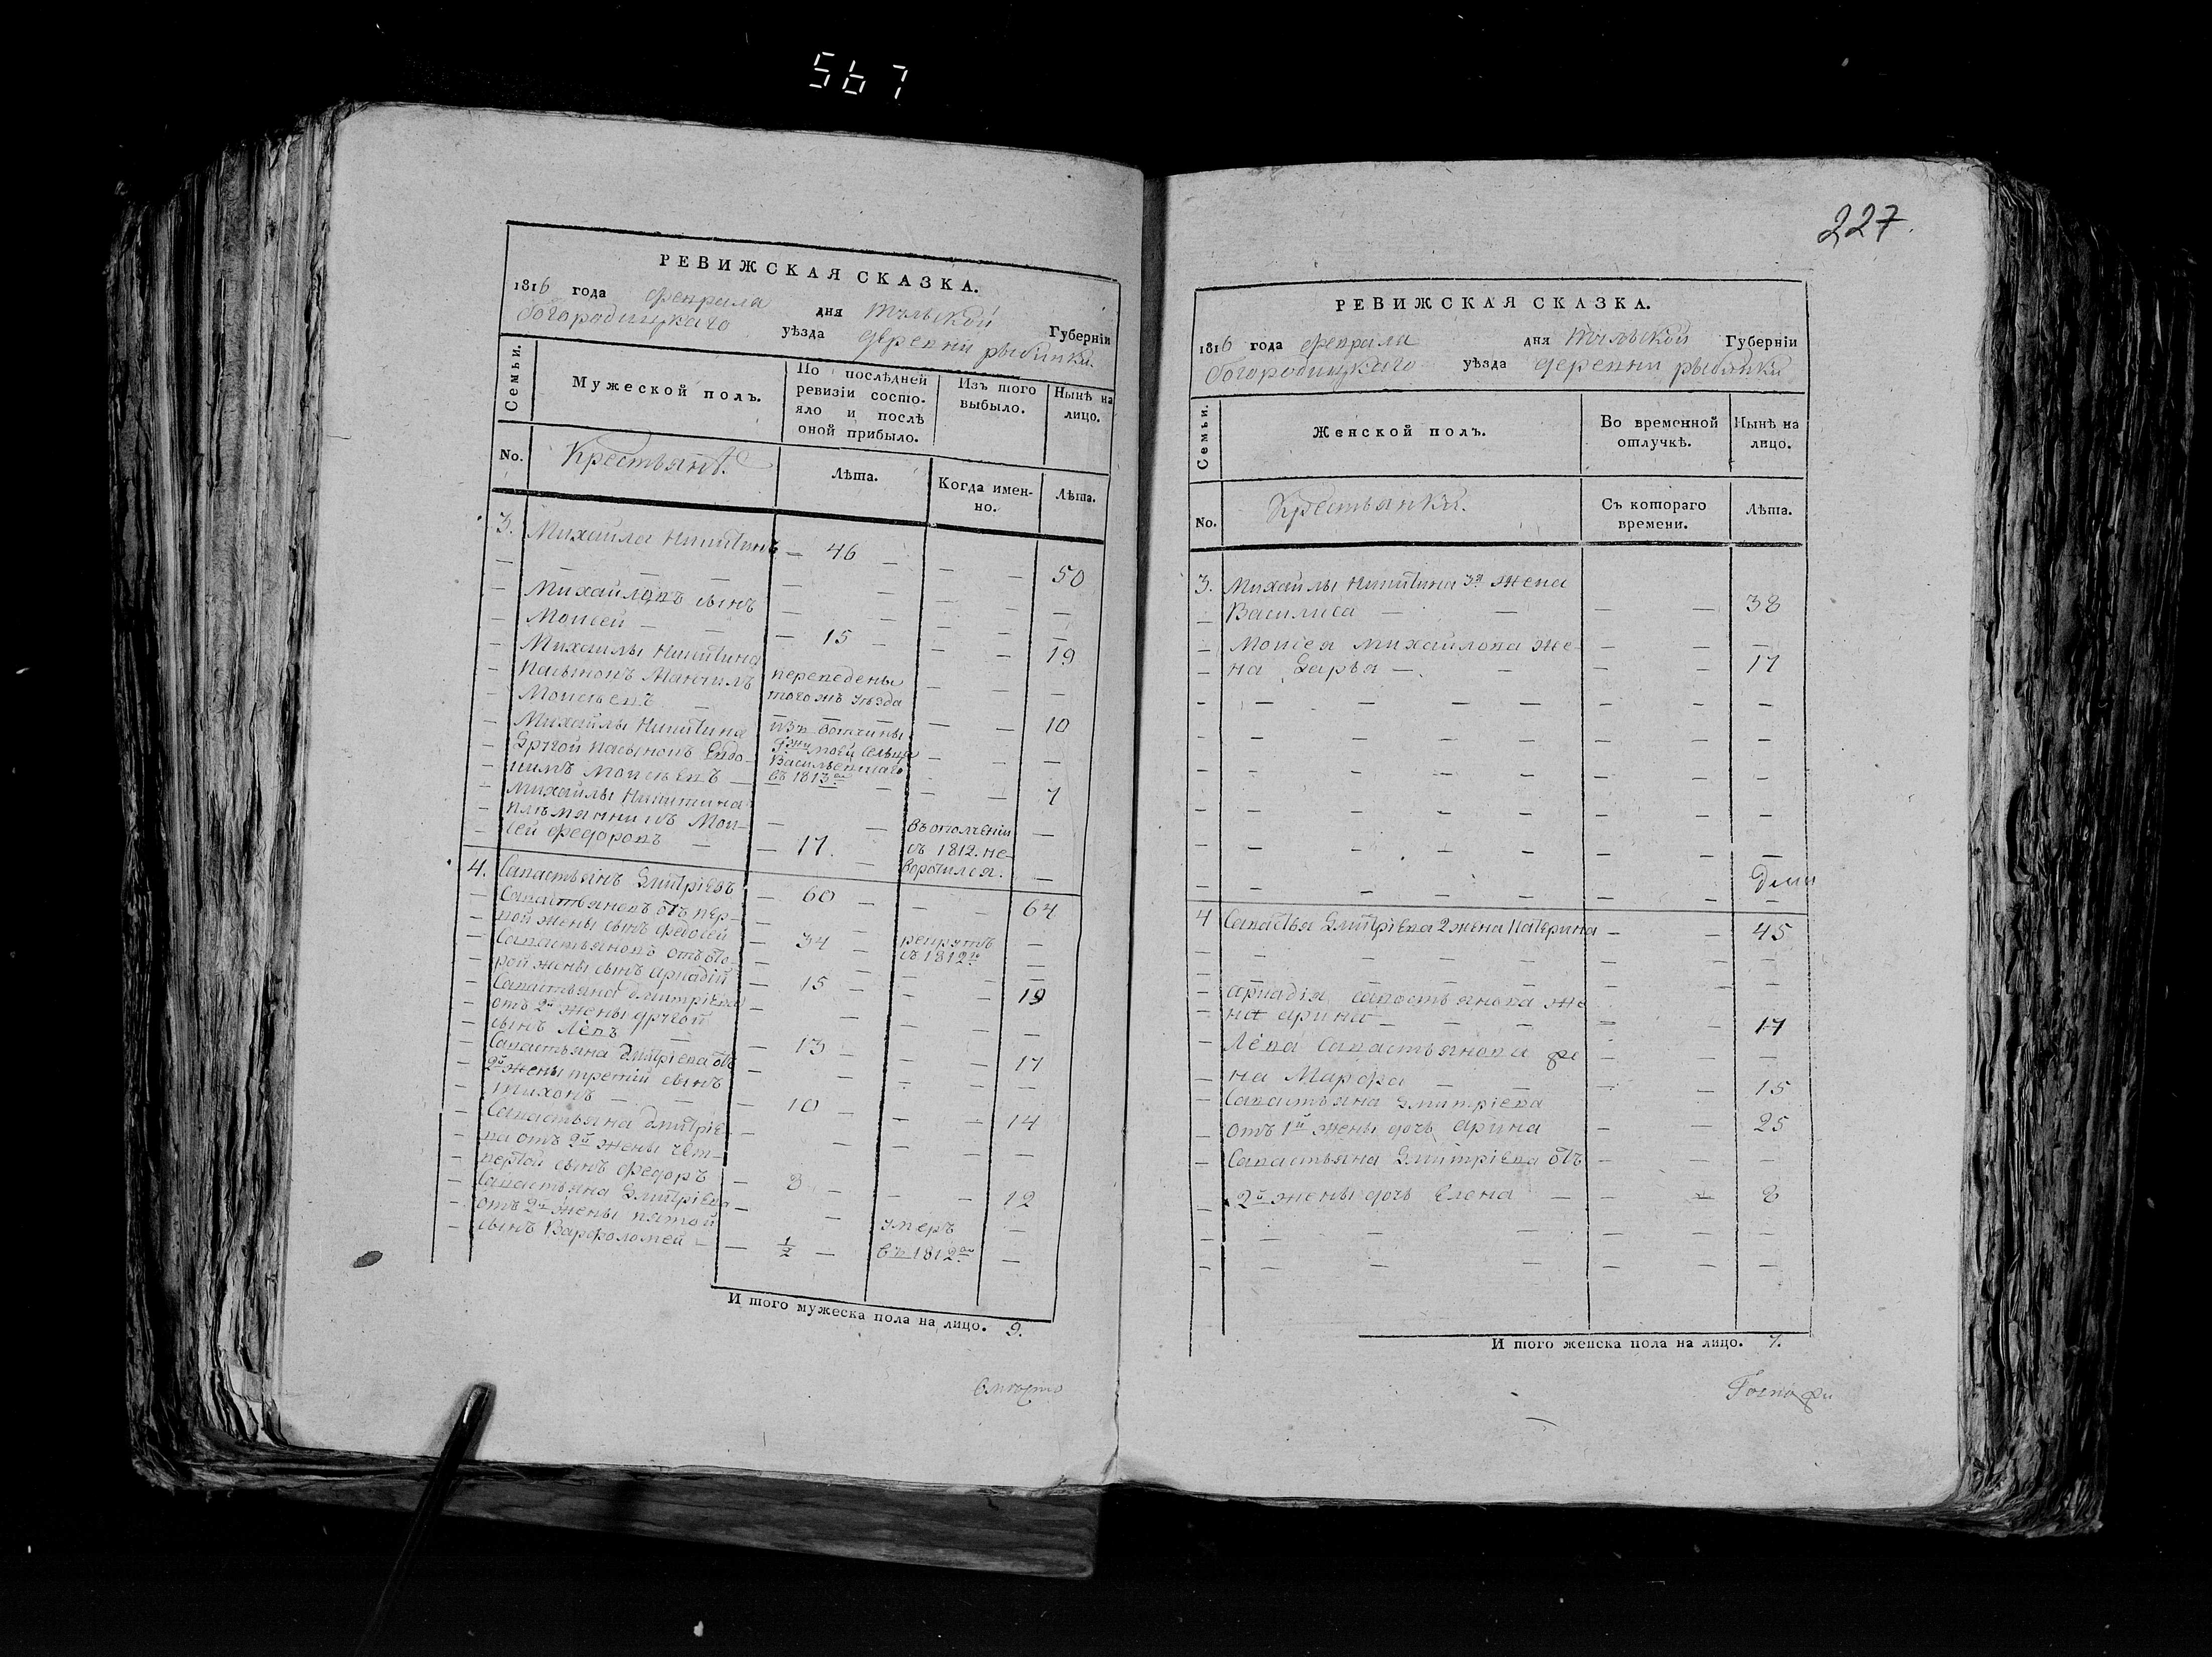 567
227.
РЕВИЖСКАЯ СКАЗКА.
1816 года февраля дня тульской Губерніи
Богородицкаго уѣзда деревни рыбинки.
Семьи.
Мужеской полъ.
По послѣдней ревизіи состо-
яло и послѣ
оной прибыло.
Изъ того
выбыло.
Нынѣ на
лицо.
No.
Крестьянѣ.
Лѣта.
Когда имен-
но.
Лѣта.
3. Михайла Никитинъ — 46 — 50
Михайловъ сынъ
Моисей — 15 — 19
Михайлы Никитина
пасынокъ переведены
Моисѣевъ — тогожъ уѣзда 10
Михайлы Никитина изъ вотчины
Другой пасынокъ Евдо- моей сельца
кимъ Моисѣевъ — Васильевскаго
въ 1813мъ 7
Михайлы Никитина
племянникъ Мои- въ ополченіи
сей федоровъ — 17. съ 1812. не-
ворочился.
4. Савастьянъ Дмитріевъ — 60 — 64
Савастьяновъ отъ пер-
вой жены сынъ федосей — 34 — рекрутъ
въ 1812го
Савастьяновъ отъ вто-
рой жены сынъ аркадій — 15 — 19
Савастьяна Дмитріева
отъ 2й жены другой
сынъ Лёвъ — 13 — 17
Савастьяна Дмитріева отъ
2й жены третій сынъ
тихонъ — 10 — 14
Савастьяна Дмитріе-
ва отъ 2й жены чет-
вертой сынъ федоръ — 8 — 12
Савастьяна Дмитріева
отъ 2й жены пятой умеръ
сынъ Варфоломей — 1/2 — въ 1812мъ
И того мужеска пола на лицо. 9.
вмѣсто
РЕВИЖСКАЯ СКАЗКА.
1816 года февраля дня тульской Губерніи
Богородицкаго уѣзда деревни рыбинки
Семьи.
Женской полъ.
Во временной
отлучкѣ.
Нынѣ на
лицо.
No.
Крестьянки.
Съ котораго
времени.
Лѣта.
3. Михайлы Никитина 3я жена
Василиса — 38
Моисея Михайлова же-
на Дарья — 17
4 Савастья Дмитріева 2 жена Катерина — 45
аркадія савостьянова же
на арина — 17
Лёва Савастьянова же
на Марфа — 15
Савастьяна Дмитріева
отъ 1й жены дочь арина — 25
Савастьяна Дмитріева отъ
2й жены дочь Елена — 8
И того женска пола на лицо. 7.